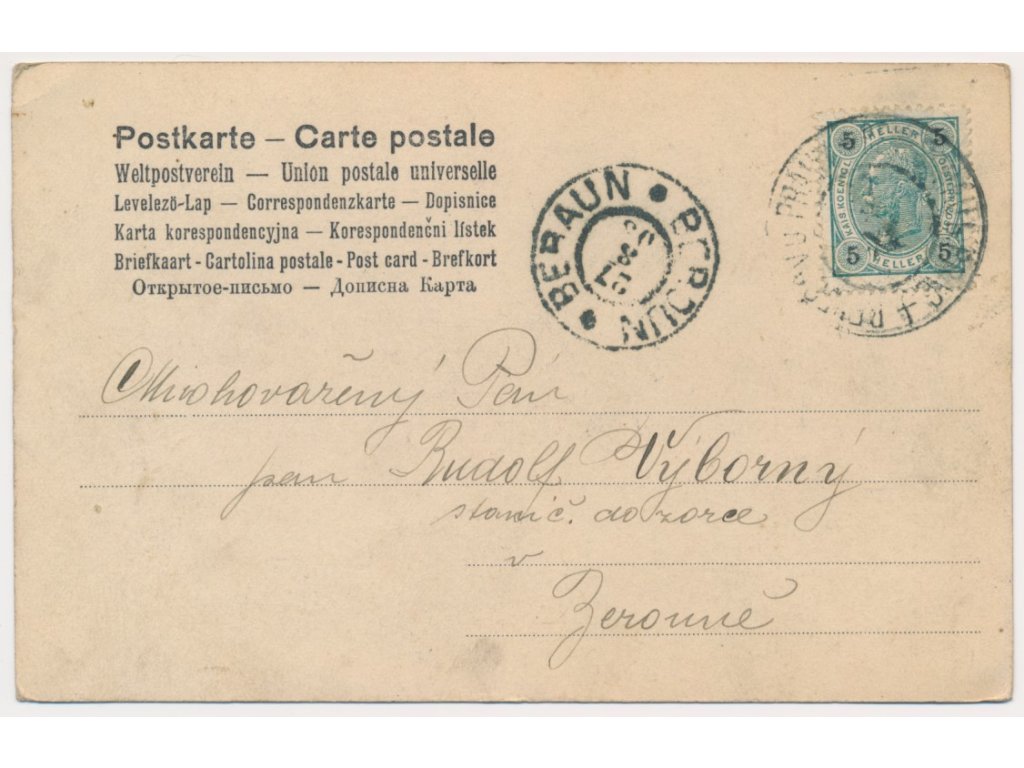 Postkarte — Carte postale
Weltpostverein — Union postale universelle
Levelező-Lap — Correspondenzkarte — Dopisnice
Karta korespondencyjna — Korespondenční lístek
Briefkaart - Cartolina postale - Post card - Brefkort
Открытое-письмо — Дописна Карта
BERAUN * BEROUN *
5 HELLER 5
KAIS. KOENIGL. OESTERR. POST
5 HELLER 5
Pán
pan Rudolf Výborný
stanič. dozorce
v